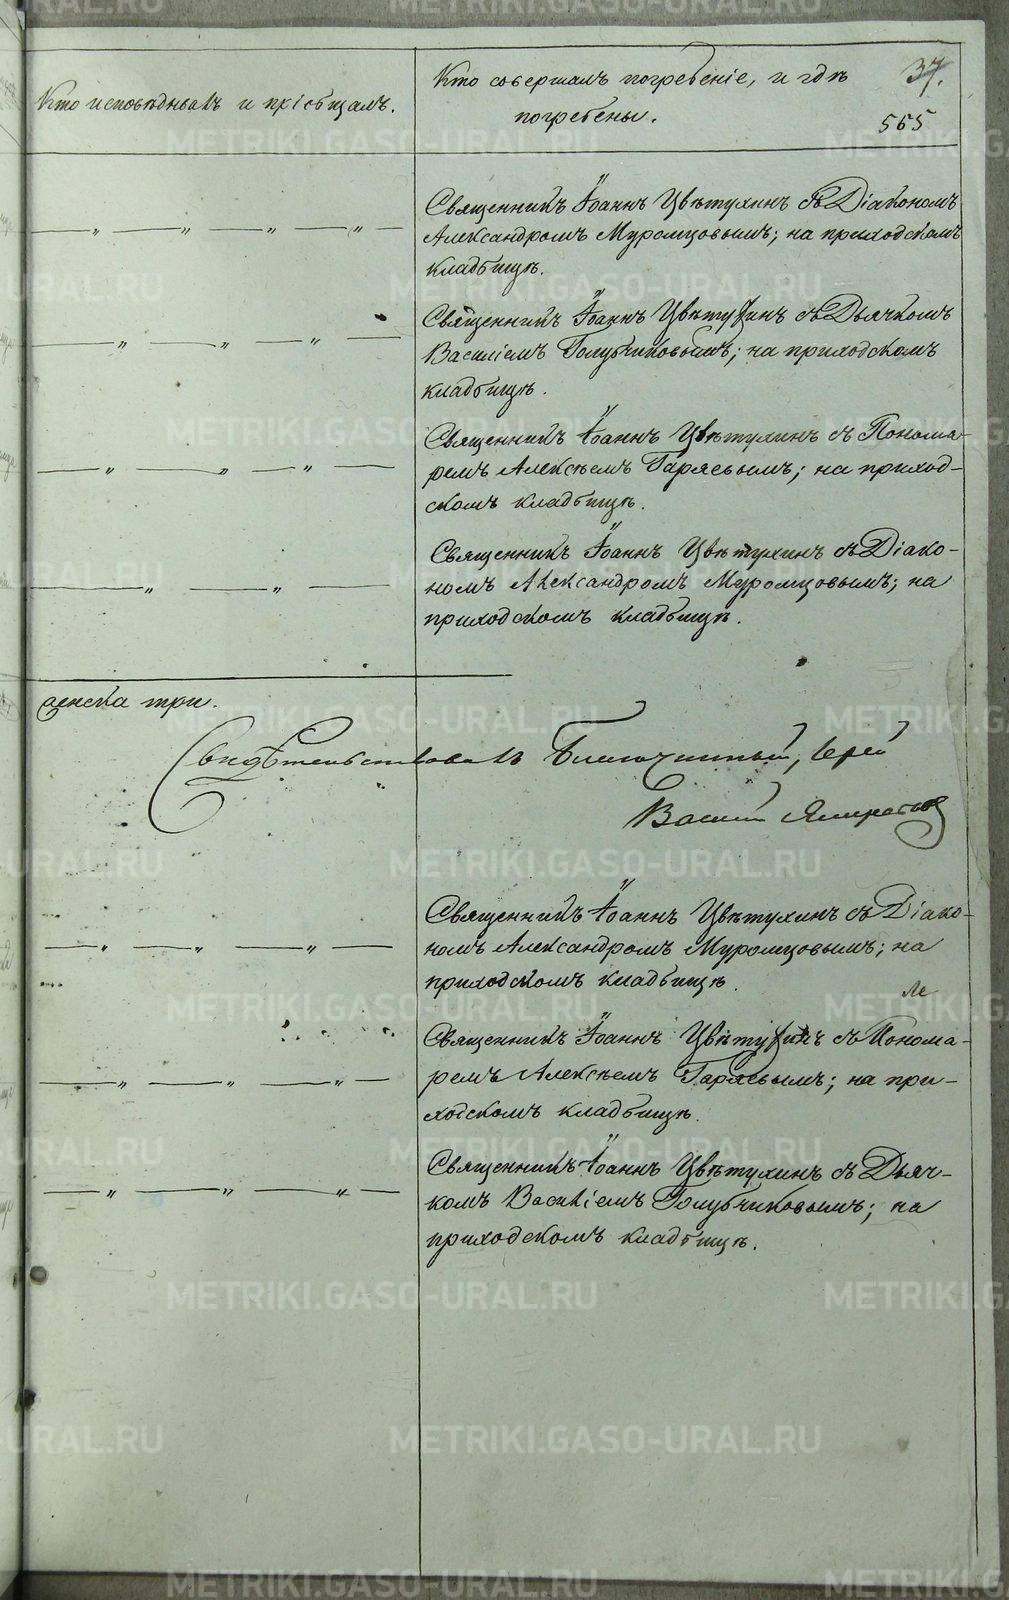 Кто исповѣдывалъ и пріобщалъ.
Кто совершалъ погребеніе, и гдѣ
погребены.
37.
565
Священникъ Іоаннъ Цвѣтухинъ съ Діакономъ
Александромъ Муромцовымъ; на приходскомъ
кладбищѣ.
Священникъ Іоаннъ Цвѣтухинъ съ Дьячкомъ
Василіемъ Голубчиковымъ; на приходскомъ
кладбищѣ.
Священникъ Іоаннъ Цвѣтухинъ съ Понома-
ремъ Алексѣемъ Гаряевымъ; на приход-
скомъ кладбищѣ.
Священникъ Іоаннъ Цвѣтухинъ съ Діако-
номъ Александромъ Муромцовымъ; на
приходскомъ кладбищѣ.
женска три.
Свидѣтельствовалъ Благочинный, Іерей
Василій
Священникъ Іоаннъ Цвѣтухинъ съ Діако-
номъ Александромъ Муромцовымъ; на
приходскомъ кладбищѣ.
Священникъ Іоаннъ Цвѣтухинъ съ Понома-
ремъ Алексѣемъ Гаряевымъ; на при-
ходскомъ кладбищѣ.
Священникъ Іоаннъ Цвѣтухинъ съ Дьяч-
комъ Василіемъ Голубчиковымъ; на
приходскомъ кладбищѣ.
METRIKI.GASO-URAL.RU